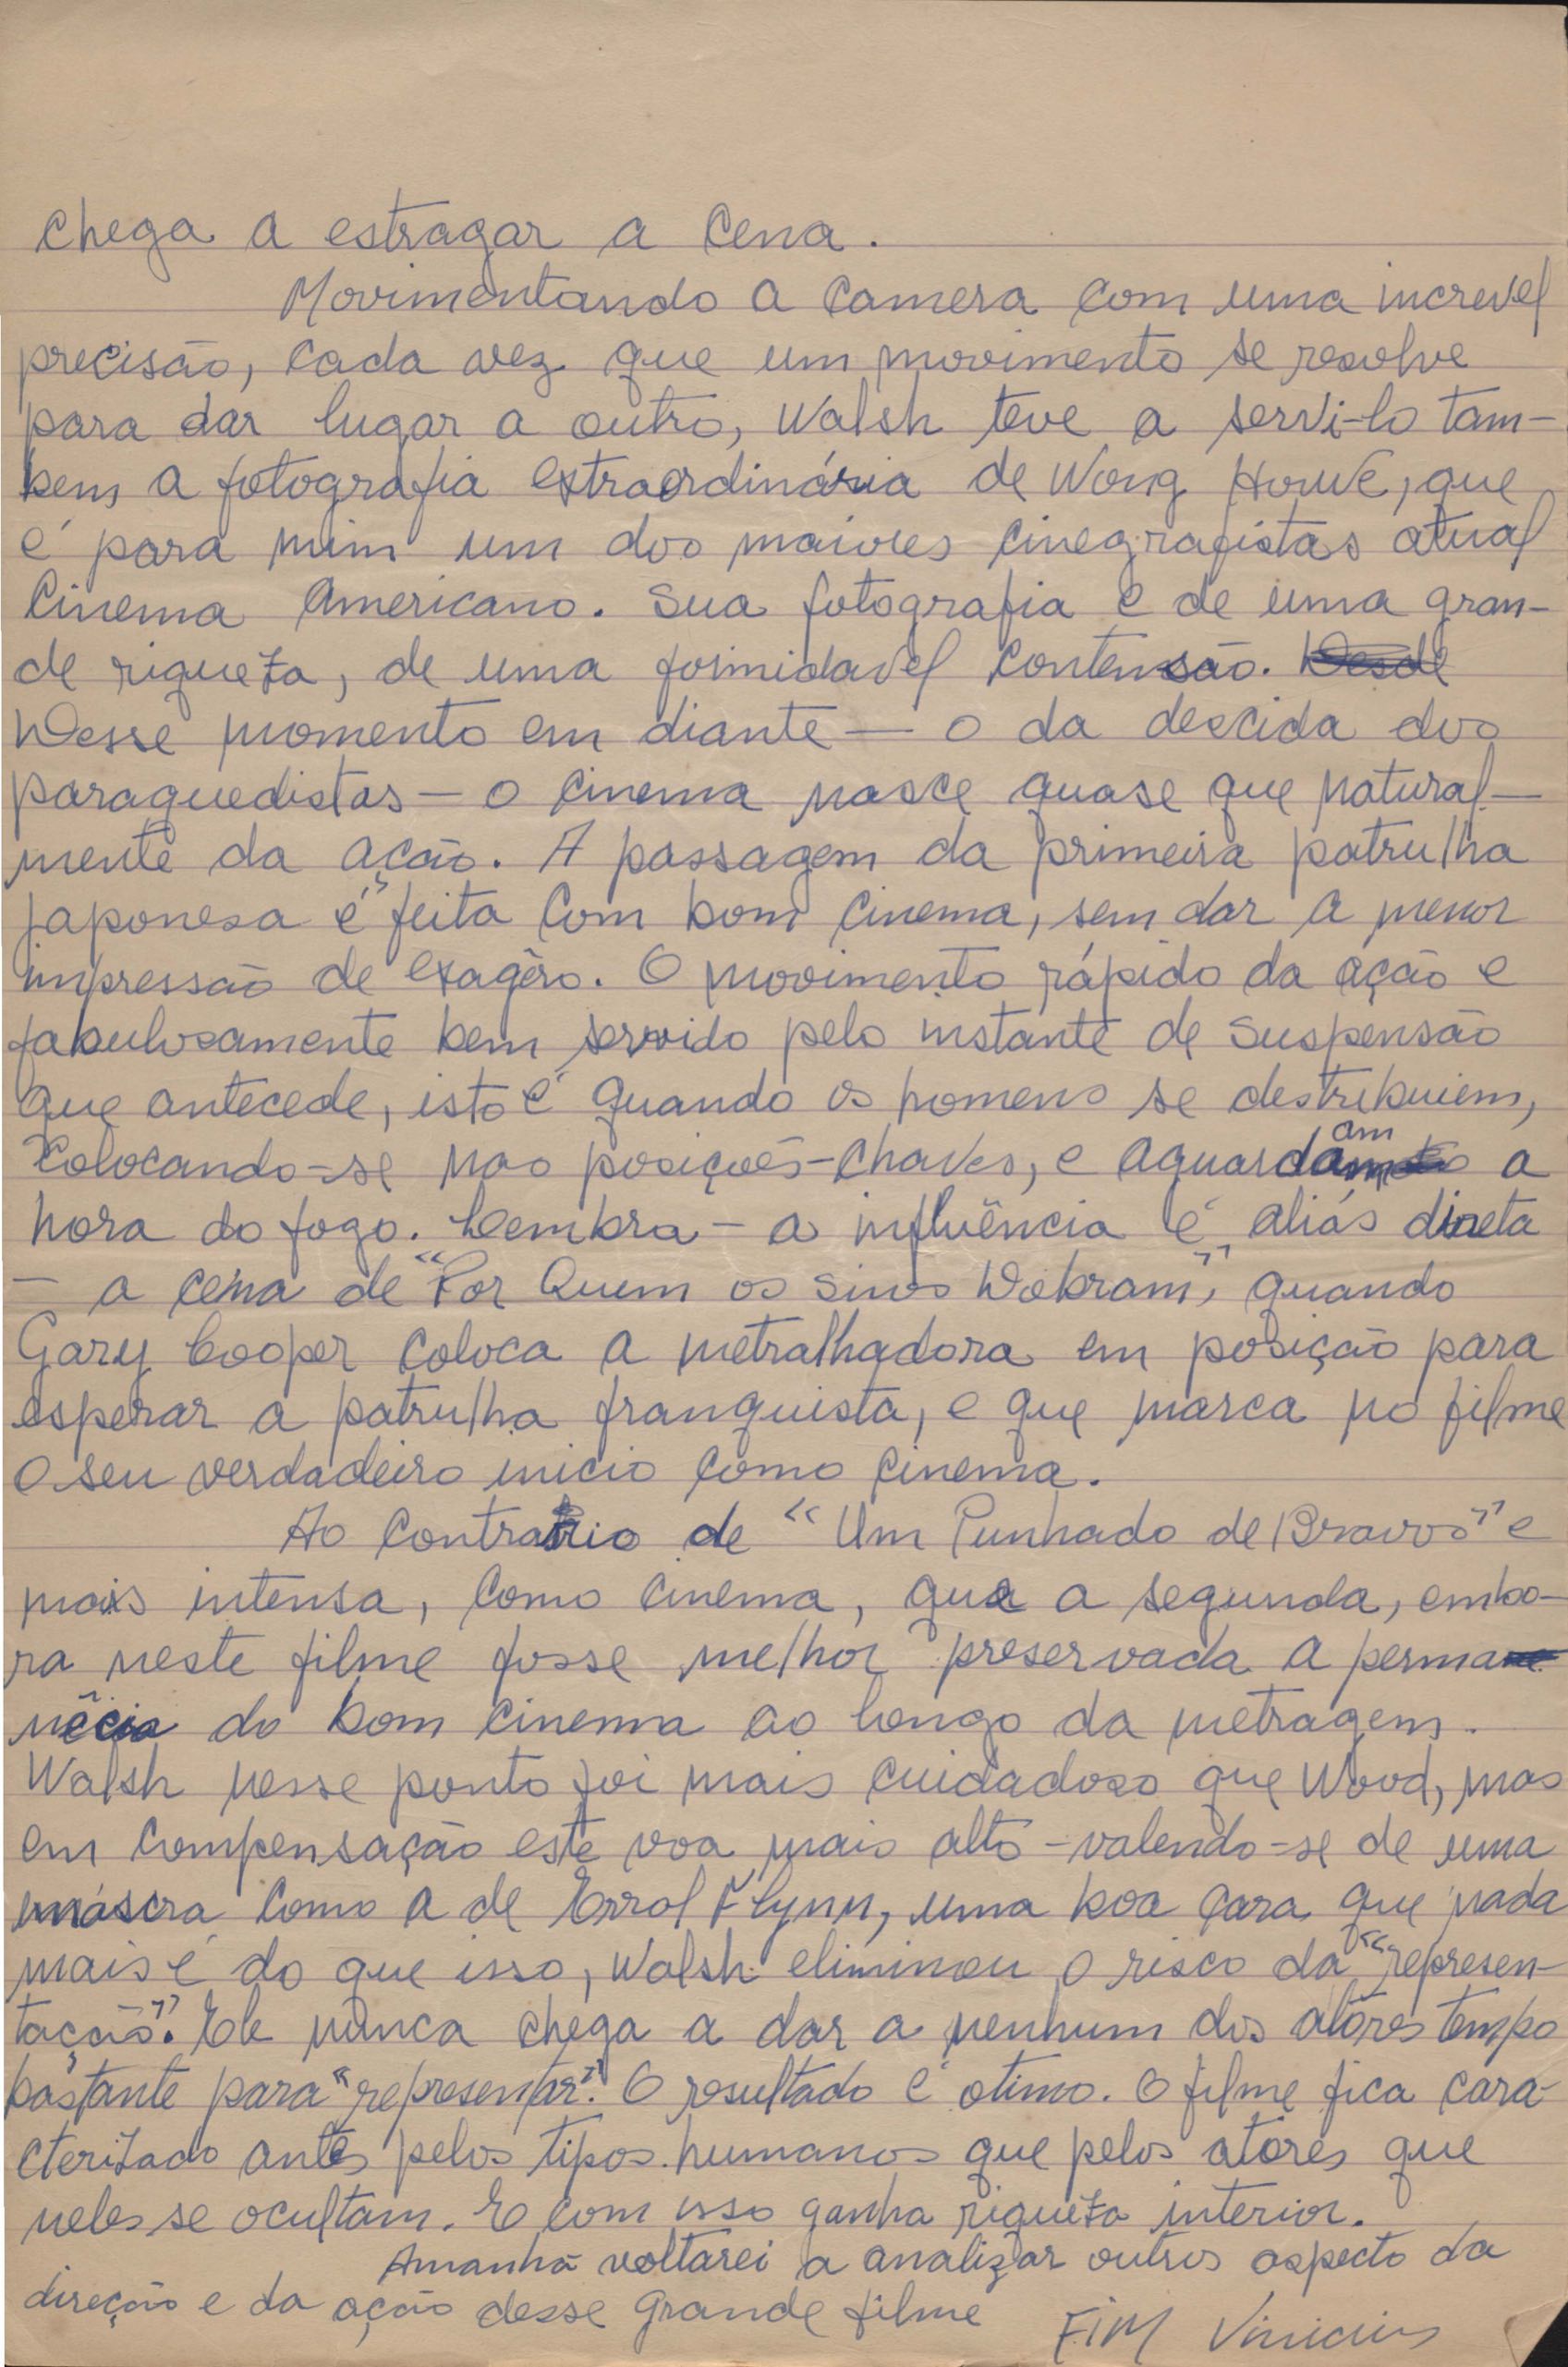 chega a estragar a cena.
Movimentando a camera com uma increvel
precisão, cada vez que um movimento se resolve
para dar lugar a outro, Walsh teve a servi-lo tam-
bem a fotografia extraordinária de Wong Howe, que
é para mim um dos maiores cinegrafistas atual
cinema americano. Sua fotografia é de uma gran-
de riqueza, de uma formidavel contensão. Desde
Desse momento em diante — o da descida dos
paraquedistas — o cinema nasce quase que natural-
mente da ação. A passagem da primeira patrulha
japonesa é feita com bom cinema, sem dar a menor
impressão de exagêro. O movimento rápido da ação e
fabulosamente bem servido pelo instante de suspensão
que antecede, isto é quando os homens se destribuiem,
colocando-se nas posições-chaves, e aguardam a
hora do fogo. Lembra — a influência é aliás direta
— a cena de "Por Quem os Sinos Dobram", quando
Gary Cooper coloca a metralhadora em posição para
esperar a patrulha franquista, e que marca no filme
o seu verdadeiro inicio como cinema.
Ao contrario de "Um Punhado de Bravos" e
mais intensa, como cinema, que a segunda, embo-
ra neste filme fosse melhor preservada a perma
nêcia do bom cinema ao longo da metragem.
Walsh nesse ponto foi mais cuidadoso que Wood, mas
em compensação este voa mais alto - valendo-se de uma
máscra como a de Errol Flynn, uma boa cara que nada
mais é do que isso, Walsh eliminou o risco da "represen-
tação". Ele nunca chega a dar a nenhum dos atôres tempo
bastante para "representar". O resultado é otimo. O filme fica cara-
cterizado antes pelos tipos humanos que pelos atores que
neles se ocultam. E com isso ganha riqueza interior.
Amanhã voltarei a analizar outros aspecto da
direção e da ação desse grande filme
FIM Vinicius